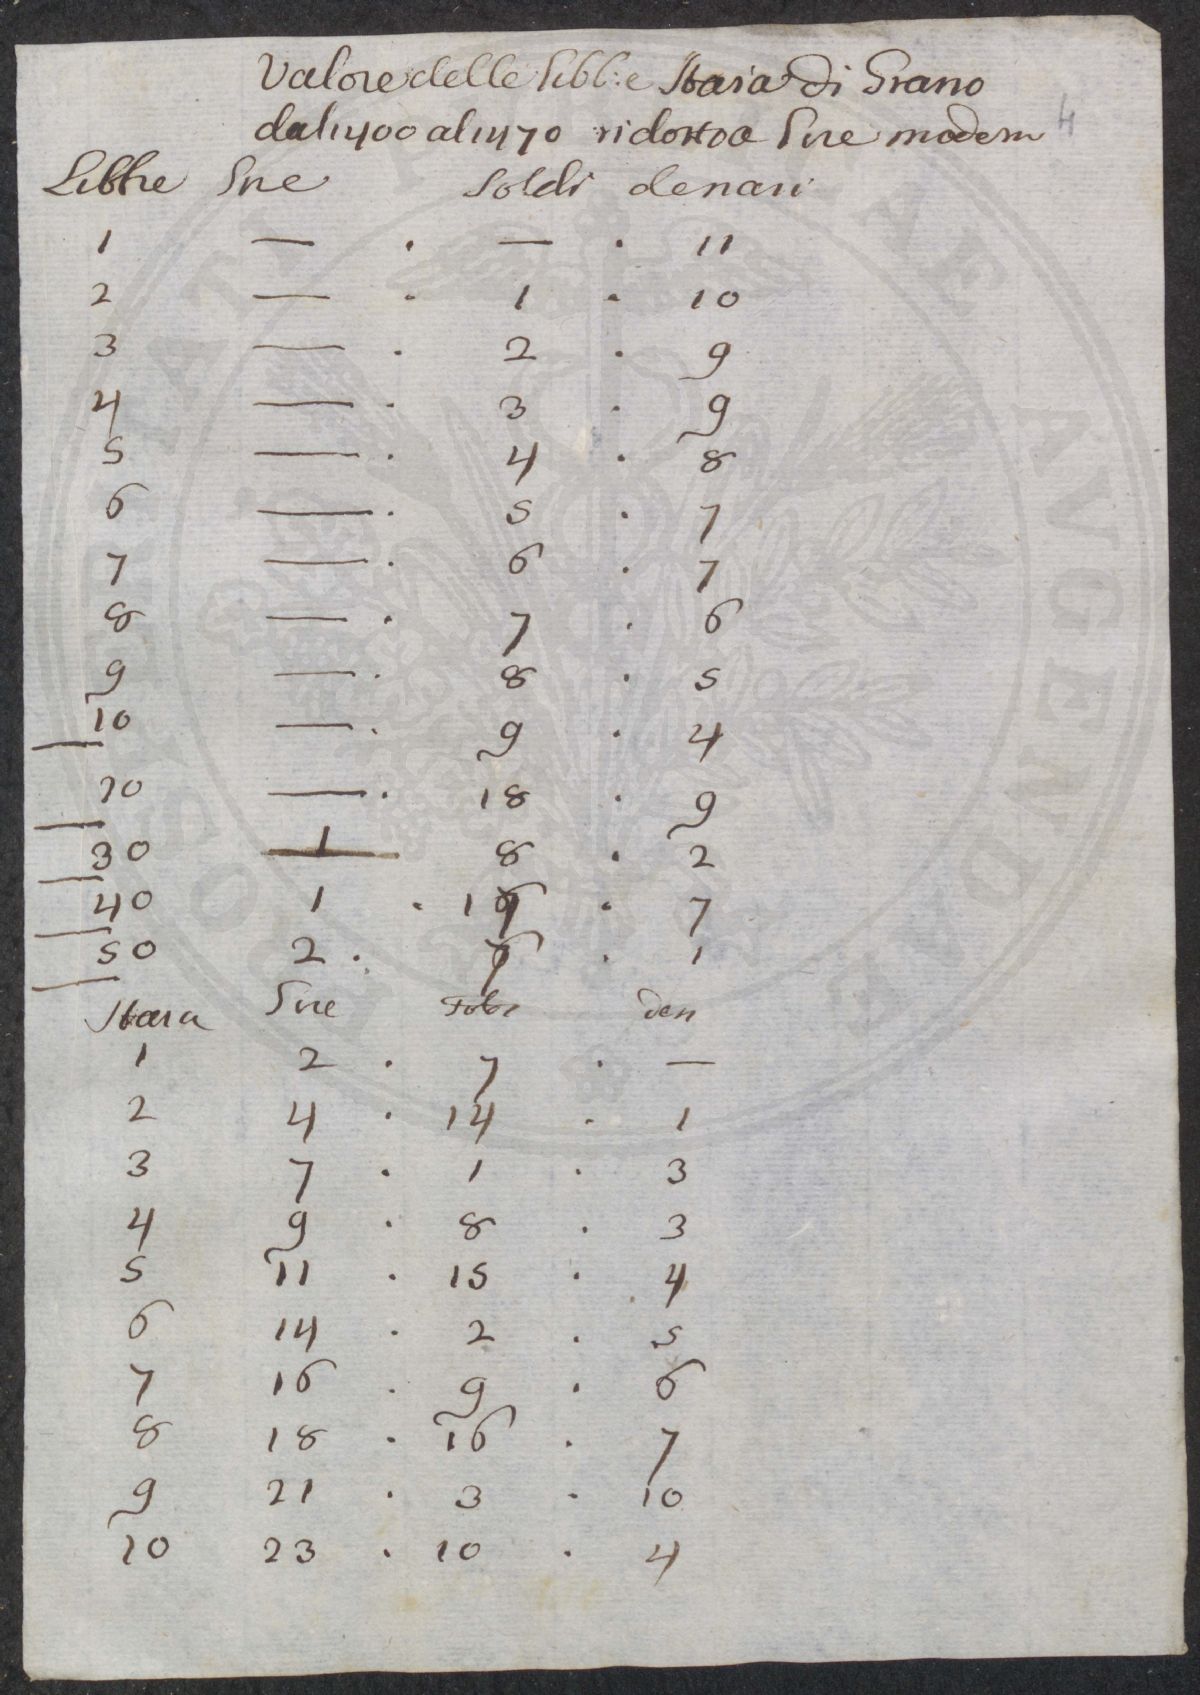 Valore delle libbre Staia di Grano
dal 1400 al 1470 ridotto a Lire modern
4
Libbre Lire Soldi denari
1 — . — . 11
2 — . 1 . 10
3 — . 2 . 9
4 — . 3 . 9
5 — . 4 . 8
6 — . 5 . 7
7 — . 6 . 7
8 — . 7 . 6
9 — . 8 . 5
10 — . 9 . 4
20 — . 18 . 9
30 1 8 . 2
40 1 . 17 . 7
50 2 . 7 . 1
Staia Lire soldi den
1 2 . 7 . —
2 4 . 14 . 1
3 7 . 1 . 3
4 9 . 8 . 3
5 11 . 15 . 4
6 14 . 2 . 5
7 16 . 9 . 6
8 18 . 16 . 7
9 21 . 3 . 10
10 23 . 10 . 4